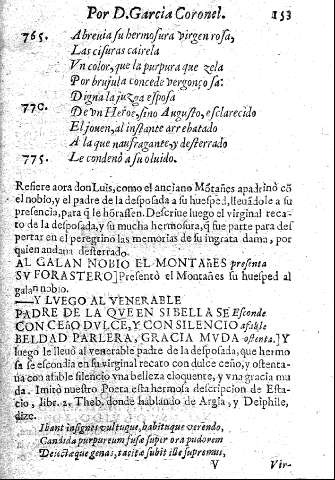 Por D. Garcia Coronel. 153
765. Abreuia su hermosura virgen rosa,
Las cisuras cairela
Vn color, que la purpura que zela
Por brujula concede vergonçosa:
Digna la juzga esposa
770. De vn Heroe, sino Augusto, esclarecido
El jouen, al instante arrebatado
A la que naufragante, y desterrado
775. Le condenò a su oluido.
Refiere aora don Luis, como el anciano Mótañes apadrinò cõ
el nobio, y el padre de la desposada a su huesped, lleuãdole a su
presencia, para q̃ le hõrassen. Descriue luego el virginal reca-
to de la desposada, y su mucha hermosura, q̃ fue parte para des
pertar en el peregrino las memorias de su ingrata dama, por
quien andaua desterrado.
AL GALAN NOBIO EL MONTAÑES presenta
SV FORASTERO] Presentò el Montañes su huesped al
galan nobio.
—Y LVEGO AL VENERABLE
PADRE DE LA QVE EN SI BELLA SE Esconde
CON CEñO DVLCE, Y CON SILENCIO afable
BELDAD PARLERA, GRACIA MVDA ostenta.] Y
luego le lleuò al venerable padre de la desposada, que hermo
sa se escondia en su virginal recato con dulce ceño, y ostenta-
ua con afable silencio vna belleza eloquente, y vna gracia mu
da. Imitò nuestro Poeta esta hermosa descripcion de Esta-
cio, libr. 2. Theb. donde hablando de Argia, y Deiphile,
dize.
Ibant insignes vultuque, habituque verendo,
Candida purpureum fusæ super ora pudorem
Deiectaque genas, tacitè subit ille supremus,
V Vir-